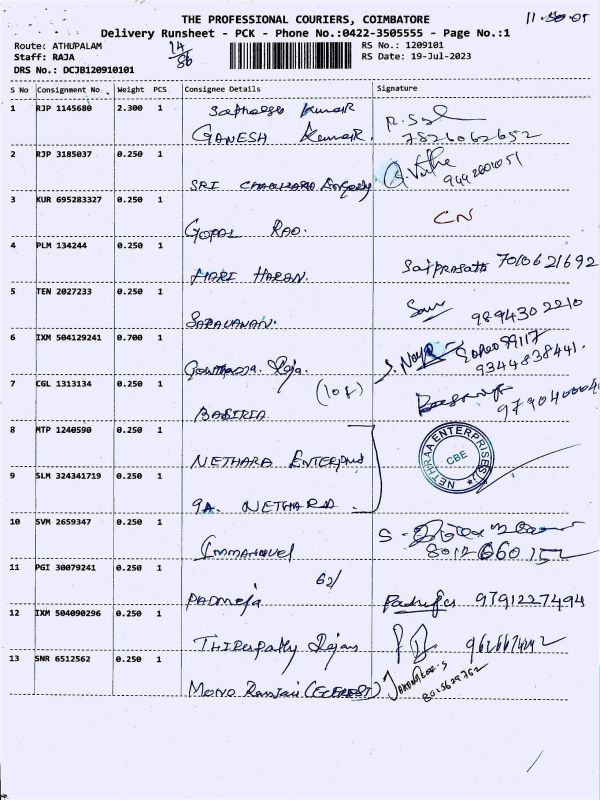 THE PROFESSIONAL COURIERS, COIMBATORE
Delivery Runsheet - PCK - Phone No.:0422-3505555 - Page No.:1
Route: ATHUPALAM RS No.: 1209101
Staff: RAJA RS Date: 19-Jul-2023
DRS No.: DCJB120910101
14
86
S No Consignment No Weight PCS Consignee Details Signature
1 RJP 1145680 2.300 1 Kumar
GANESH Kumar. 7824062652
2 RJP 3185037 0.250 1
SRI
3 KUR 695283327 0.250 1 CN
GOPAL RAO.
4 PLM 134244 0.250 1
HARI HARAN. Saiprasath 7010621692
5 TEN 2027233 0.250 1
SARAVANAN. 9894302210
6 IXM 504129241 0.700 1
Raja. 9344838441.
7 CGL 1313134 0.250 1 (108)
BABIRIA
8 MTP 1240590 0.250 1 NETHRAA ENTERPRISES CBE
NETHARA
9 SLM 324341719 0.250 1
9A. NETHARA
10 SVM 2659347 0.250 1
Immanuvel
11 PGI 30079241 0.250 1 62/
PADMEJA 9791227494
12 IXM 504090296 0.250 1
Rajan
13 SNR 6512562 0.250 1
MONO 8015629762